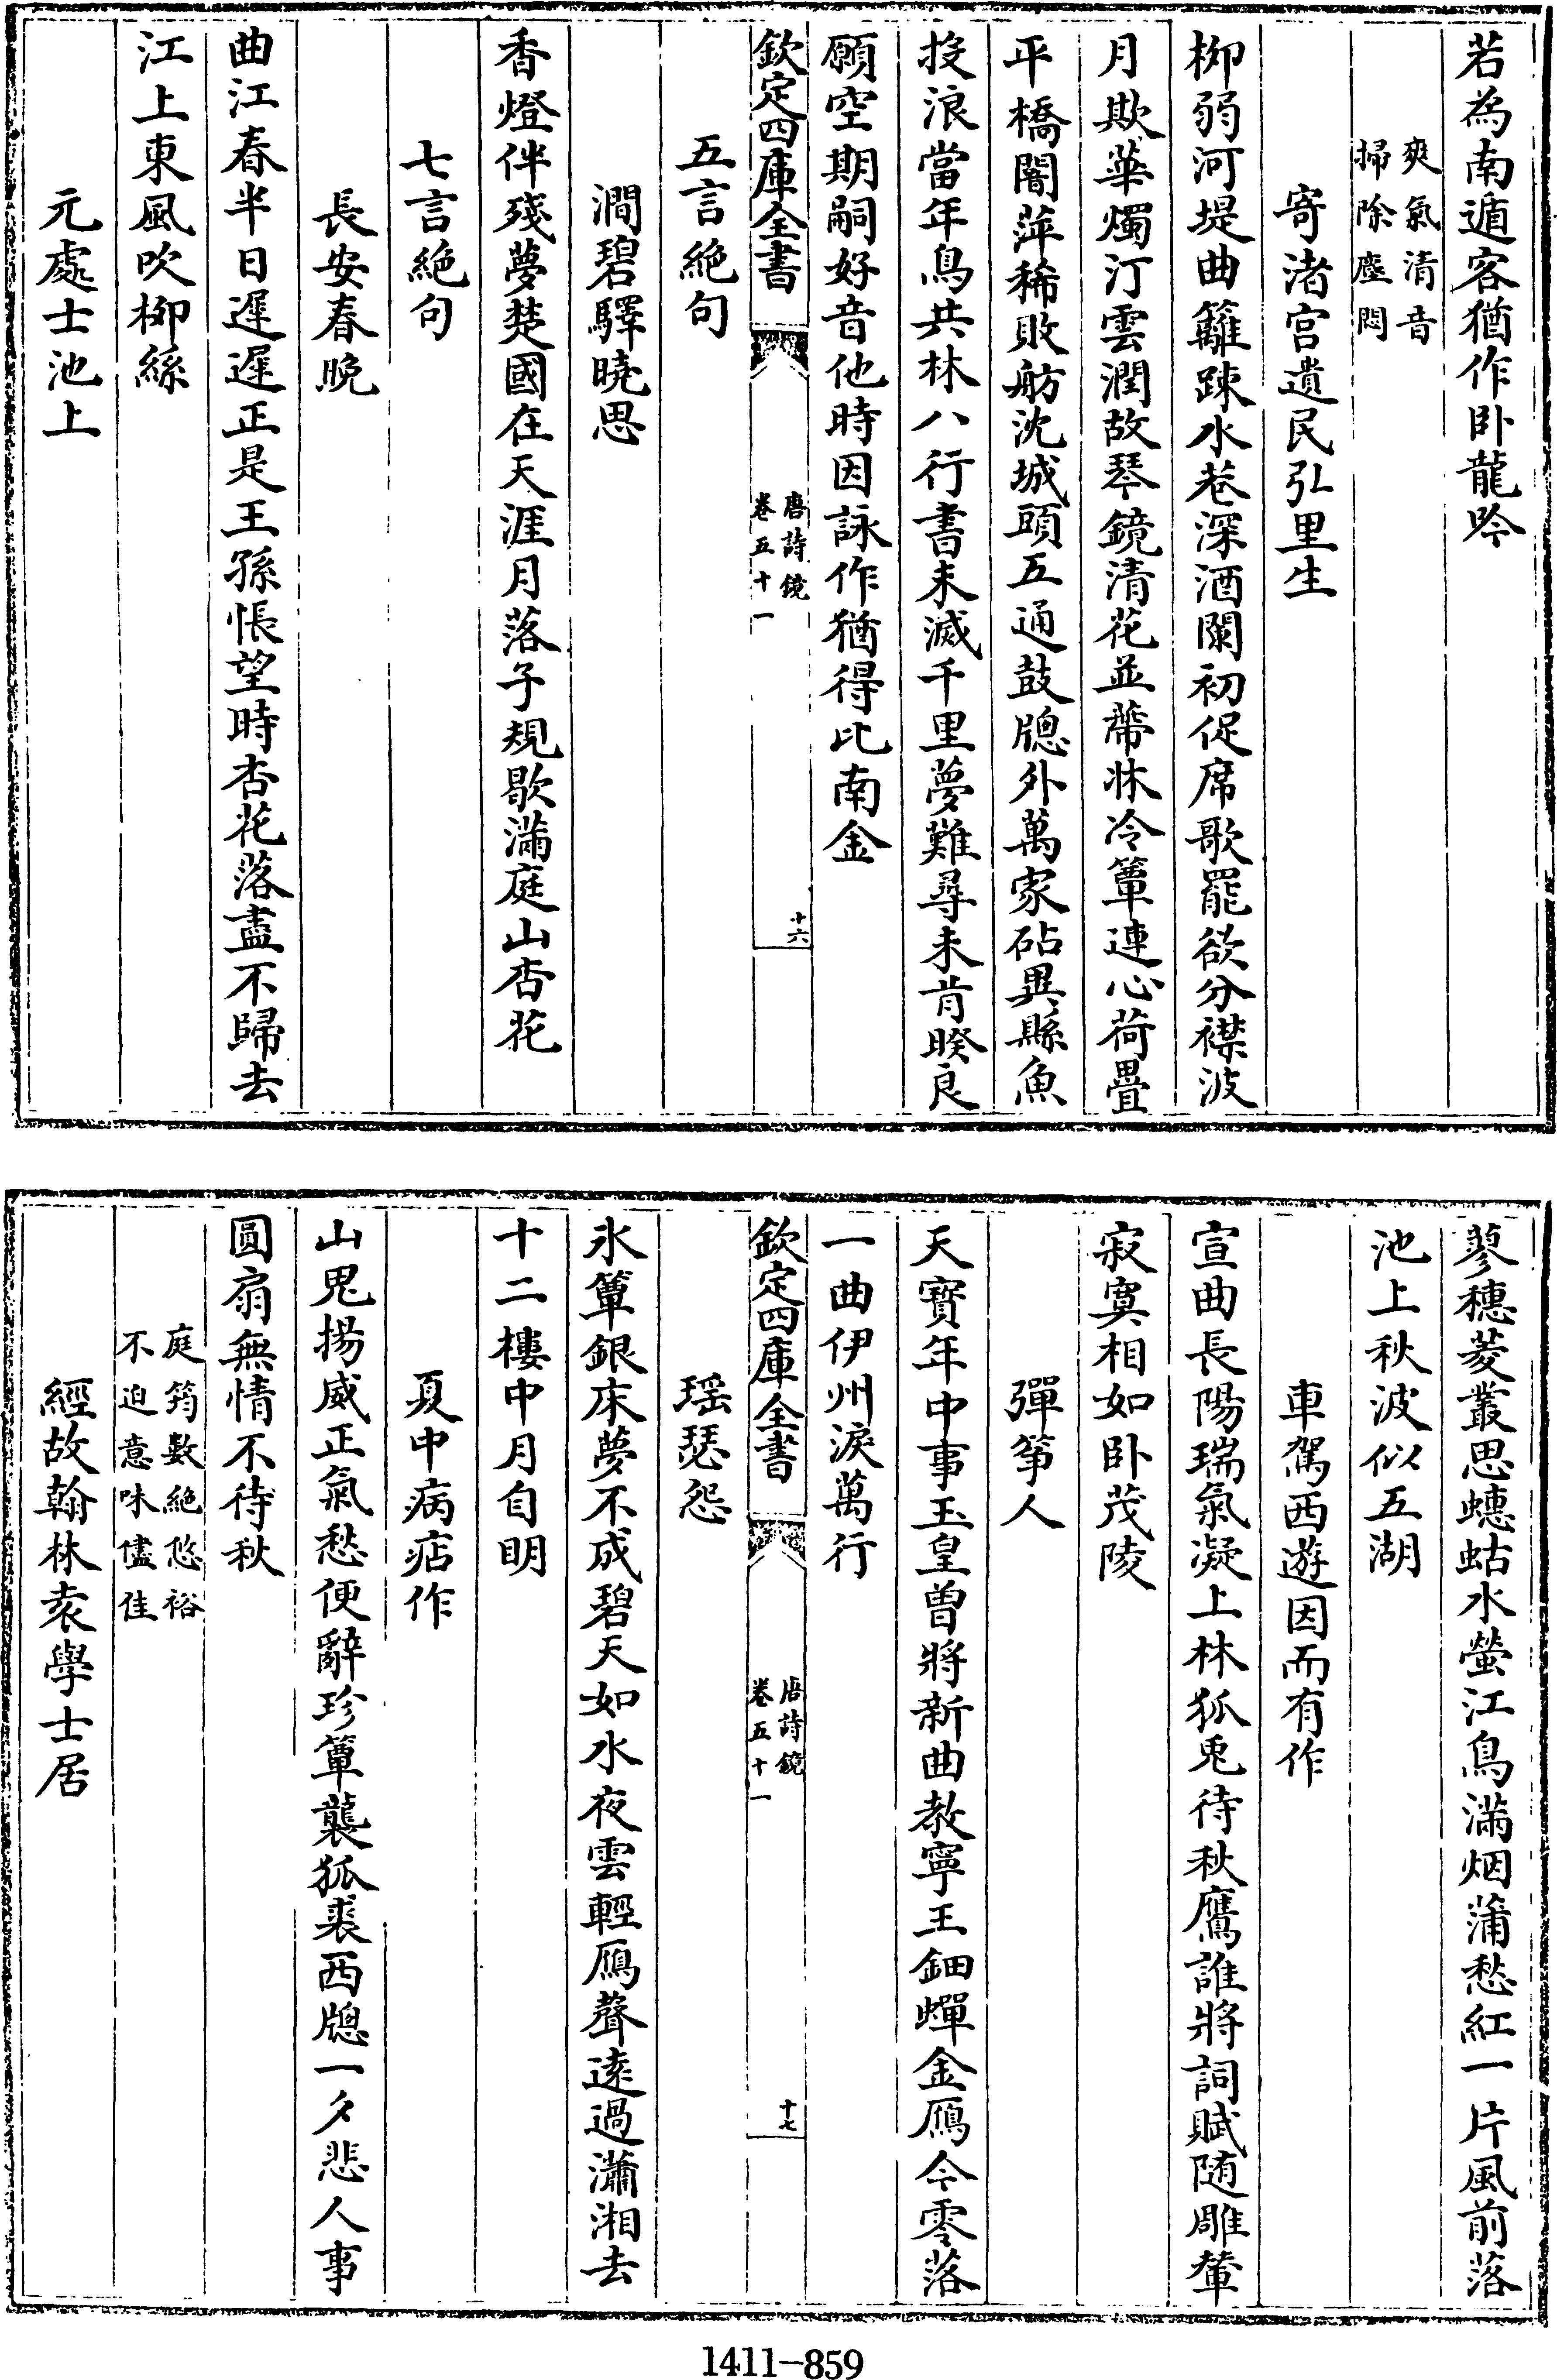 若為南遁客猶作卧龍吟
爽氣清音
掃除塵悶
寄渚宮遺民弘里生
柳弱河堤曲籬踈水巷深酒闌初促席歌罷欲分襟波
月欺華燭汀雲潤故琴鏡清花並蔕牀冷簟連心荷疊
平橋闇萍稀敗舫沈城頭五通鼓牎外萬家砧異縣魚
投浪當年鳥共林八行書未滅千里夢難尋未肯暌良
願空期嗣好音他時因詠作猶得比南金
欽定四庫全書
唐詩鏡
卷五十一
十六
五言絶句
澗碧驛曉思
香燈伴殘夢楚國在天涯月落子規歇滿庭山杏花
七言絶句
長安春晚
曲江春半日遲遲正是王孫悵望時杏花落盡不歸去
江上東風吹柳絲
元處士池上
蓼穗菱叢思蟪蛄水螢江鳥滿烟蒲愁紅一片風前落
池上秋波似五湖
車駕西遊因而有作
宣曲長陽瑞氣凝上林狐兎待秋鷹誰將詞賦随雕輦
寂寞相如卧茂陵
彈箏人
天寳年中事玉皇曽將新曲教寧王鈿蟬金鴈今零落
一曲伊州淚萬行
欽定四庫全書
唐詩鏡
卷五十一
十七
瑶瑟怨
氷簟銀床夢不成碧天如水夜雲輕鴈聲逺過瀟湘去
十二樓中月自明
夏中病痁作
山鬼揚威正氣愁便辭珍簟襲狐裘西牎一夕悲人事
圓扇無情不待秋
庭筠數絶悠裕
不迫意味儘佳
經故翰林袁學士居
1411-859